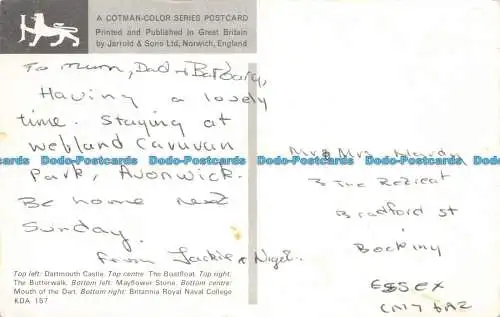 A COTMAN-COLOR SERIES POSTCARD
Printed and Published in Great Britain
by Jarrold & Sons Ltd, Norwich, England
To mum, Dad & Barbara,
Having a lovely
time. Staying at
webland Caravan
Park, Avonwick.
Be home next
Sunday.
from Jackie & Nigel.
Top left: Dartmouth Castle. Top centre: The Boatfloat. Top right:
The Butterwalk. Bottom left: Mayflower Stone. Bottom centre:
Mouth of the Dart. Bottom right: Britannia Royal Naval College
KDA 157
Mr & Mrs
3 The Retreat
Bradford St
Bocking
ESSEX
CM7
Dodo-Postcards Dodo-Postcards Dodo-Postcards Dodo-Postcards